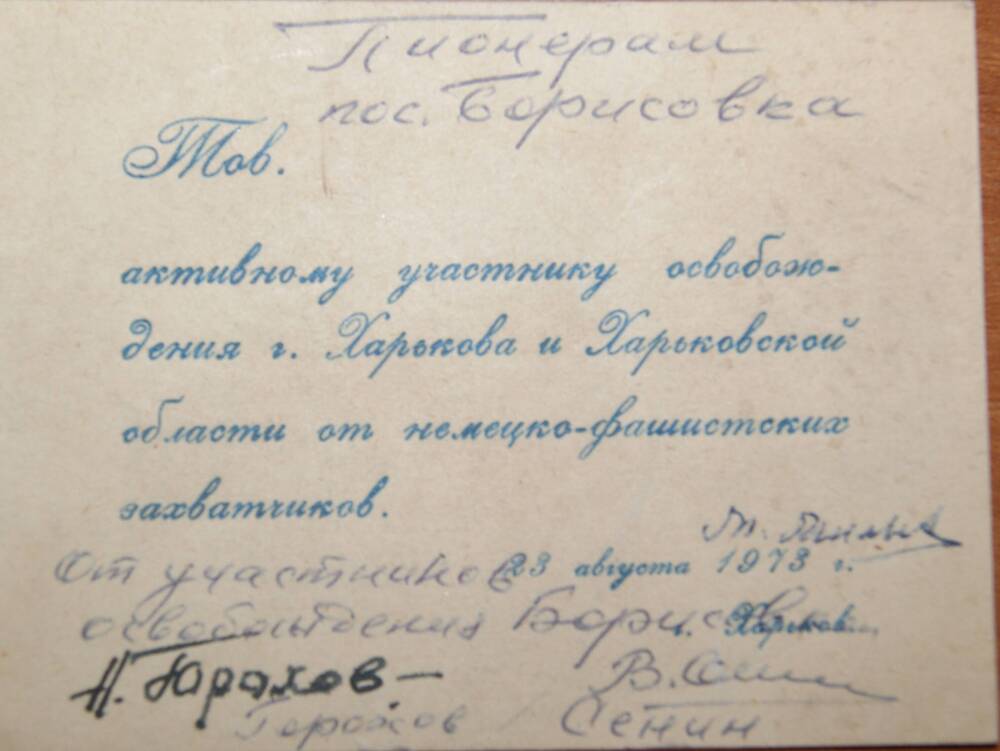 Пионерам
пос. Борисовка
Тов.
активному участнику освобож-
дения г. Харькова и Харьковской
области от немецко-фашистских
захватчиков.
От участников 23 августа 1973 г.
освобождения Борисовки г. Харьков
Н. Юрахов В.
Горохов Сенин